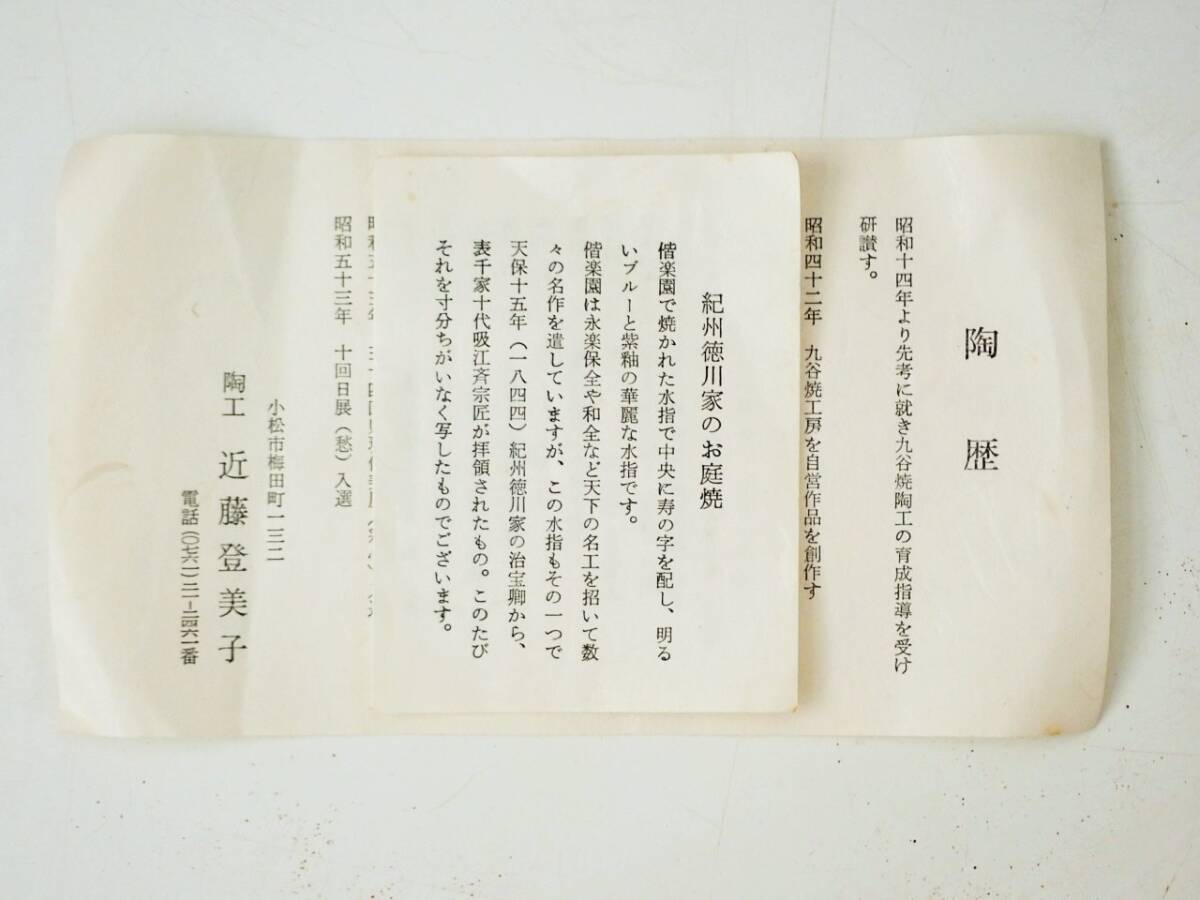 陶歴
昭和十四年より先考に就き九谷焼陶工の育成指導を受け
研讃す。
昭和四十二年 九谷焼工房を自営作品を創作す
紀州徳川家のお庭焼
偕楽園で焼かれた水指で中央に寿の字を配し、明る
いブルーと紫釉の華麗な水指です。
偕楽園は永楽保全や和全など天下の名工を招いて数
々の名作を遺していますが、この水指もその一つで
天保十五年(一八四四)紀州徳川家の治宝卿から、
表千家十代吸江斉宗匠が拝領されたもの。このたび
それを寸分ちがいなく写したものでございます。
昭和五十三年 十回日展(愁)入選
小松市梅田町一三二
陶工 近藤登美子
電話(〇七六一)二一-二四六一番